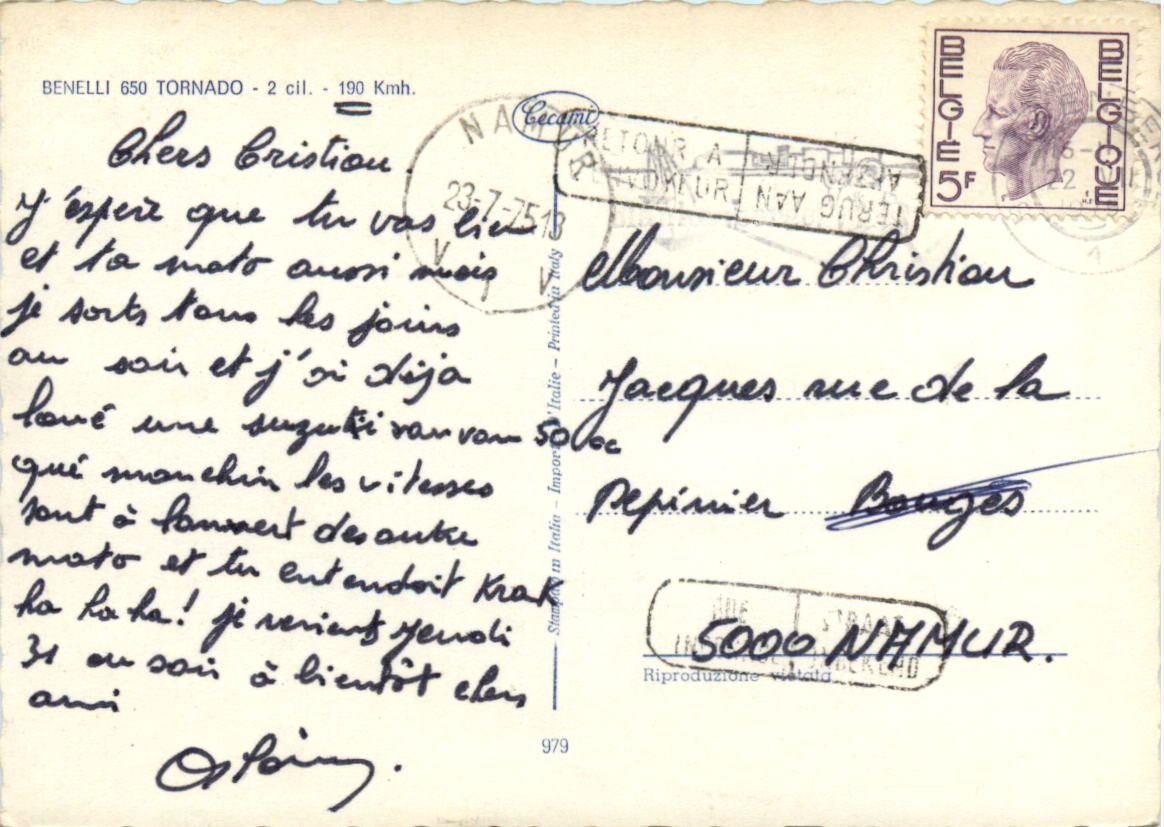 BENELLI 650 TORNADO - 2 cil. - 190 Kmh.
Chers Cristian
J'esperz que tu vas bien
et ta moto aussi mais
je sorts tous les jours
au soir et j'ai déja
loué une suzuki van van 50 cc
qué manchin les vitesses
sont à l'anvert des autre
moto et tu entendoit Krak
ha ha ha! je reviens Jeudi
31 au soir à bientôt chers
ami
Alain.
Cecami
NAMUR
23-7-75 18
V V
RETOUR A
TERUG AAN
AFZENDER
BELGIE BELGIQUE
5F
22
1
Monsieur Christian
Jacques rue de la
Pepinier Bouges
5000 NAMUR.
RUE
INCONNUE
STRAAT
ONBEKEND
Riproduzione vietata
Stampato in Italia - Importé d'Italie - Printed in Italy
979